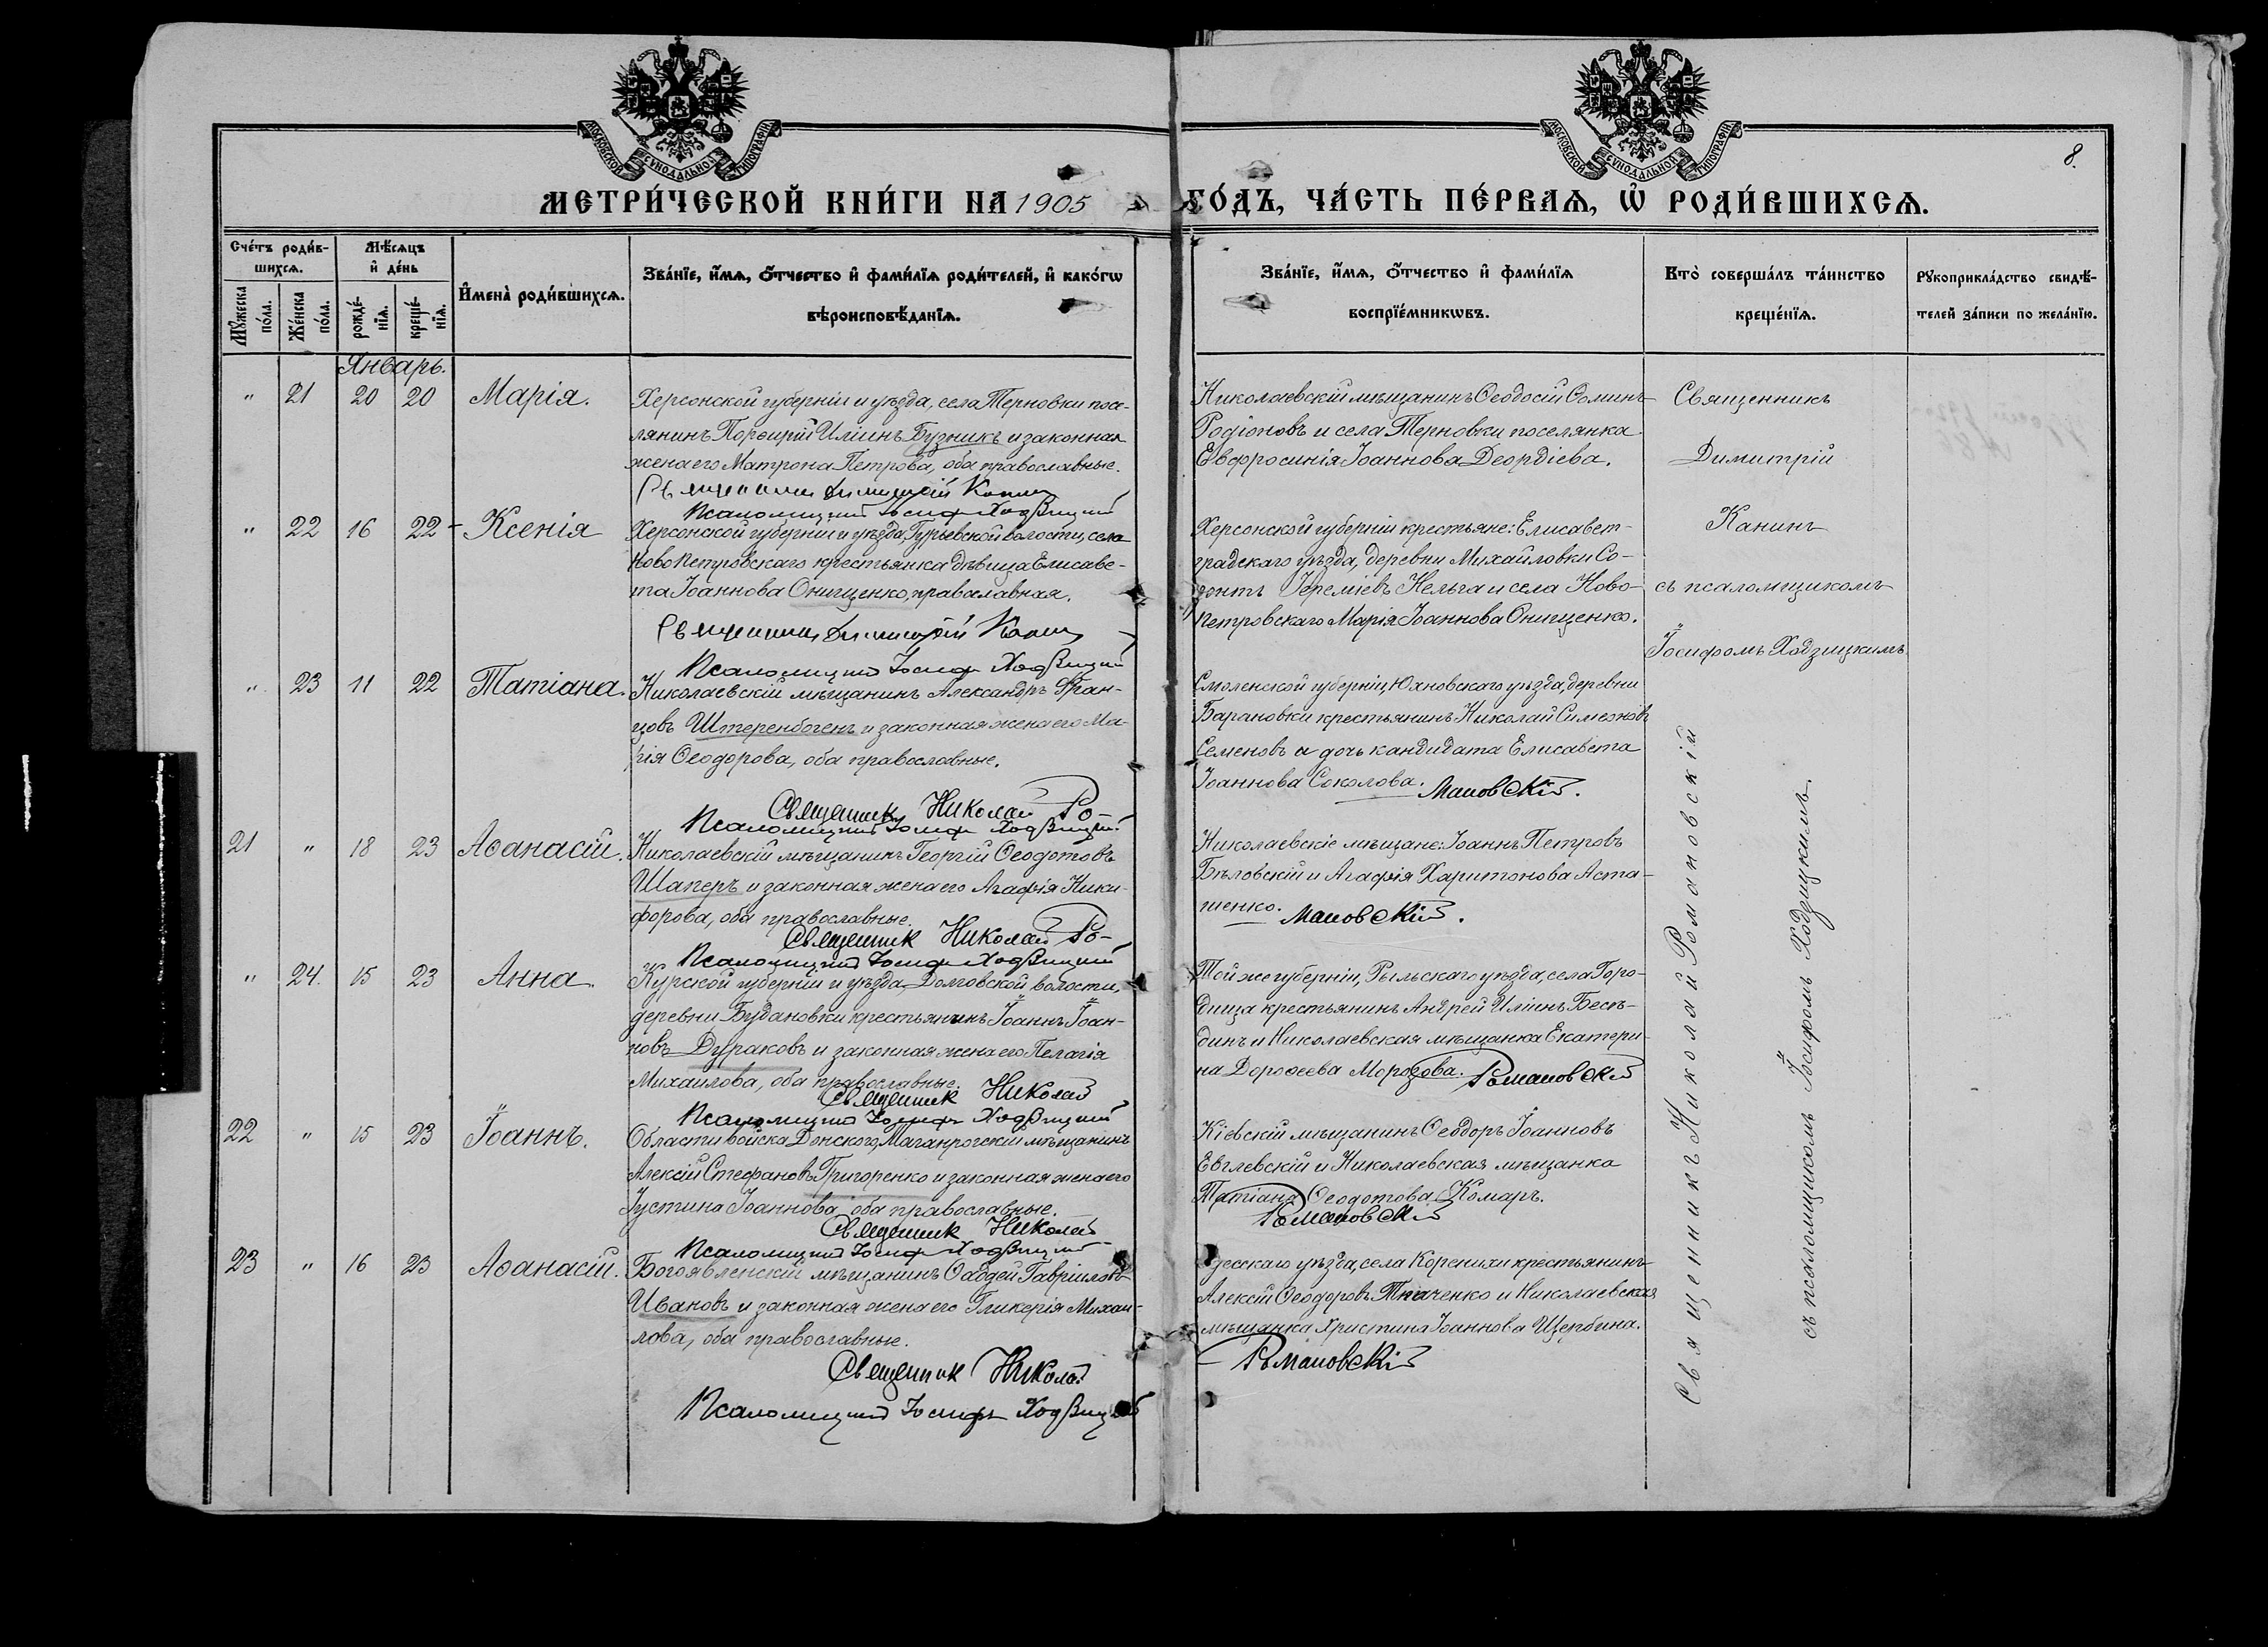 МОСКОВСКОЙ СѴНОДАЛЬНОЙ ТИПОГРАФІИ
МОСКОВСКОЙ СѴНОДАЛЬНОЙ ТИПОГРАФІИ
8.
МЕТРИ́ЧЕСКОЙ КНИ́ГИ НА 1905
ГО́ДЪ, ЧА́СТЬ ПЕ́РВАѦ, Ѡ҆ РОДИ́ВШИХСѦ.
Сче́тъ роди́в-
шихсѧ.
Мꙋ́жеска по́ла.
Же́нска по́ла.
Мѣ́сѧцъ
и҆ де́нь
рожде́-
нїѧ.
креще́-
нїѧ.
И҆мена̀ роди́вшихсѧ.
Зва́нїе, и҆́мѧ, ѻ҆́тчество и҆ фами́лїѧ роди́телей, и҆ како́гѡ
вѣроисповѣ́данїѧ.
Зва́нїе, и҆́мѧ, ѻ҆́тчество и҆ фами́лїѧ
воспрїе́мникѡвъ.
Кто̀ соверша́лъ та́инство
креще́нїѧ.
Рꙋкоприкла́дство свидѣ́-
телей за́писи по жела́нїю.
Январь.
" 21 20 20 Марія.
Херсонской губерніи и уѣзда, села Терновки посе-
лянинъ Порфирій Иліинъ Бузникъ и законная
жена его Матрона Петрова, оба православные.
Священникъ Димитрій Канинъ
Псаломщикъ Іосифъ Ходзицкій
Николаевскій мѣщанинъ Ѳеодосій Ѳоминъ
Родіоновъ и села Терновки поселянка
Евфросинія Іоаннова Деордіева.
Священникъ
Димитрій
Канинъ
съ псаломщикомъ
Іосифомъ Ходзицкимъ
" 22 16 22 Ксенія
Херсонской губерніи и уѣзда, Гурьевской волости, села
Новопетровскаго крестьянка дѣвица Елисаве-
та Іоаннова Онищенко, православная.
Священникъ Димитрій Канинъ
Псаломщикъ Іосифъ Ходзицкій
Херсонской губерніи крестьяне: Елисавет-
градскаго уѣзда, деревни Михайловки Со-
зонтъ Іереміевъ Нельга и села Ново-
петровскаго Марія Іоаннова Онищенко.
" 23 11 22 Татіана.
Николаевскій мѣщанинъ Александръ Фран-
цовъ Штеренбогенъ и законная жена его Ма-
рія Ѳеодорова, оба православные.
Священникъ Николай Ро-
Псаломщикъ Іосифъ Ходзицкій
Смоленской губерніи, Юхновскаго уѣзда, деревни
Барановки крестьянинъ Николай Симеоновъ
Семеновъ и дочь кандидата Елисавета
Іоаннова Соколова. мановскій.
21 " 18 23 Аѳанасій.
Николаевскій мѣщанинъ Георгій Ѳеодотовъ
Шаперъ и законная жена его Агафія Ники-
форова, оба православные.
Священникъ Николай Ро-
Псаломщикъ Іосифъ Ходзицкій
Николаевскіе мѣщане: Іоаннъ Петровъ
Бѣловскій и Агафія Харитонова Аста-
шенко. мановскій.
" 24. 15 23 Анна.
Курской губерніи и уѣзда, Долговской волости,
деревни Будановки крестьянинъ Іоаннъ Іоан-
новъ Дураковъ и законная жена его Пелагія
Михаилова, оба православные.
Священникъ Николай
Псаломщикъ Іосифъ Ходзицкій
Той же губерніи, Рыльскаго уѣзда, села Горо-
дища крестьянинъ Андрей Иліинъ Бесѣ-
динъ и Николаевская мѣщанка Екатери-
на Дороѳеева Морозова. Романовскій
22 " 15 23 Іоаннъ.
Области войска Донского, Таганрогскій мѣщанинъ
Алексій Стефановъ Григоренко и законная жена его
Іустина Іоаннова, оба православные.
Священникъ Николай
Псаломщикъ Іосифъ Ходзицкій
Кіевскій мѣщанинъ Ѳеодоръ Іоанновъ
Евглевскій и Николаевская мѣщанка
Татіана Ѳеодотова Комаръ.
Романовскій
23 " 16 23 Аѳанасій.
Богоявленскій мѣщанинъ Ѳаддей Гавріиловъ
Ивановъ и законная жена его Гликерія Михаи-
лова, оба православные.
Священникъ Николай
Псаломщикъ Іосифъ Ходзицкій
Одесскаго уѣзда, села Коренихи крестьянинъ
Алексій Ѳеодоровъ Ткаченко и Николаевская
мѣщанка Христина Іоаннова Щербина.
Романовскій
Священникъ Николай Романовскій
съ псаломщикомъ Іосифомъ Ходзицкимъ.